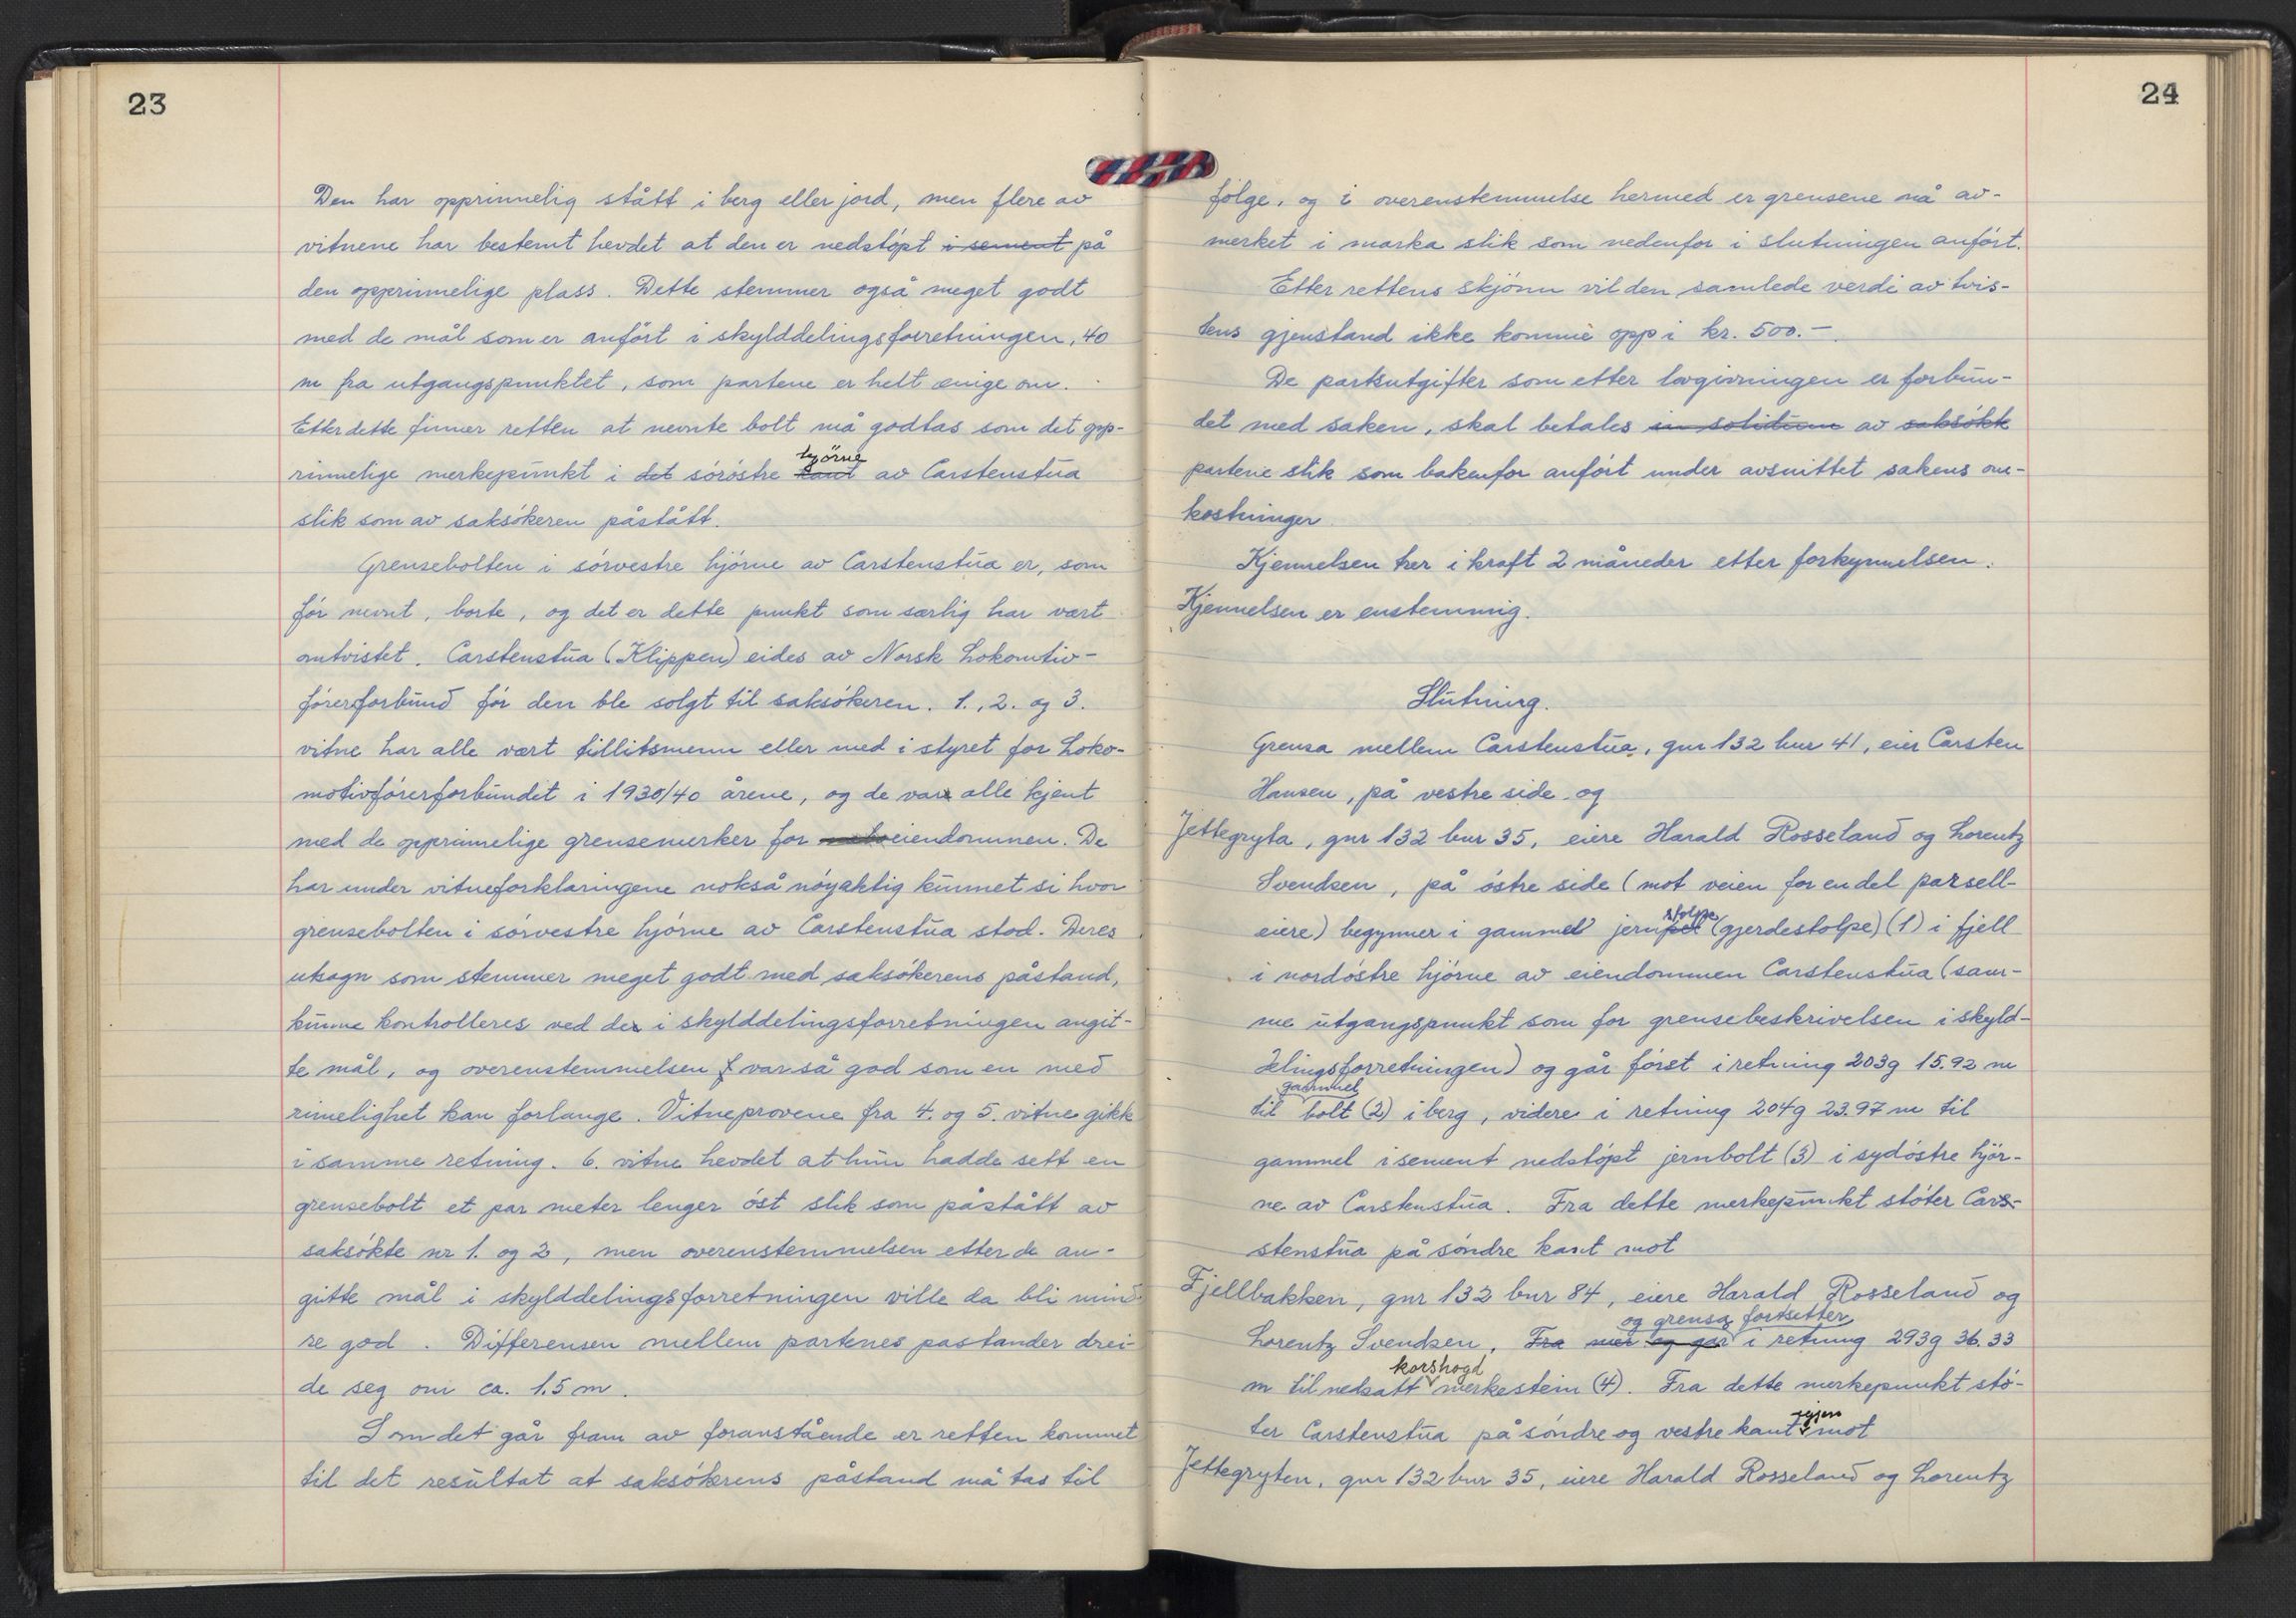 23
Den har opprinnelig stått i berg eller jord, men flere av
vitnene har bestemt hevdet at den er nedstøpt i sement på
den opprinnelige plass. Dette stemmer også meget godt
med de mål som er anført i skylddelingsforretningen, 40
m fra utgangspunktet, som partene er helt enige om.
Etter dette finner retten at nevnte bolt må godtas som det opp-
rinnelige merkepunkt i det sørøstre kant hjørne av Carstenstua
slik som av saksøkeren påstått.
Grensebolten i sørvestre hjørne av Carstenstua er, som
før nevnt, borte, og det er dette punkt som særlig har vært
omtvistet. Carstenstua (Klippen) eides av Norsk Lokomotiv-
førerforbund før den ble solgt til saksøkeren. 1., 2. og 3.
vitne har alle vært tillitsmenn eller med i styret for Loko-
motivførerforbundet i 1930/40 årene, og de var alle kjent
med de opprinnelige grensemerker for eiendommen. De
har under vitneforklaringene nokså nøyaktig kunnet si hvor
grensebolten i sørvestre hjørne av Carstenstua stod. Deres
utsagn som stemmer meget godt med saksøkerens påstand,
kunne kontrolleres ved de i skylddelingsforretningen angit-
te mål, og overenstemmelsen var så god som en med
rimelighet kan forlange. Vitneprovene fra 4. og 5. vitne gikk
i samme retning. 6. vitne hevdet at hun hadde sett en
grensebolt et par meter lenger øst slik som påstått av
saksøkte nr 1. og 2, men overenstemmelsen etter de an-
gitte mål i skylddelingsforretningen ville da bli mind-
re god. Differensen mellem partenes påstander drei-
de seg om ca. 1.5 m.
Som det går fram av foranstående er retten kommet
til det resultat at saksøkerens påstand må tas til
24
følge, og i overenstemmelse hermed er grensene nå av-
merket i marka slik som nedenfor i slutningen anført.
Etter rettens skjønn vil den samlede verdi av tvis-
tens gjenstand ikke komme opp i kr. 500.-
De partsutgifter som etter lovgivningen er forbun-
det med saken, skal betales in solidum av saksøkk
partene slik som bakenfor anført under avsnittet sakens om-
kostninger
Kjennelsen trer i kraft 2 måneder etter forkynnelsen.
Kjennelsen er enstemmig.
Slutning.
Grensa mellem Carstenstua, gnr 132 bnr 41, eier Carsten
Hansen, på vestre side og
Jettegryta, gnr 132 bnr 35, eiere Harald Rosseland og Lorentz
Svendsen, på østre side (mot veien for en del parsell-
eiere) begynner i gammel jernpel stolpe (gjerdestolpe) (1) i fjell
i nordøstre hjørne av eiendommen Carstenstua (sam-
me utgangspunkt som for grensebeskrivelsen i skyld-
delingsforretningen) og går først i retning 203g 15.92 m
til gammel bolt (2) i berg, videre i retning 204g 23.97 m til
gammel i sement nedstøpt jernbolt (3) i sydøstre hjør-
ne av Carstenstua. Fra dette merkepunkt støter Car-
stenstua på søndre kant mot
Fjellbakken, gnr 132 bnr 84, eiere Harald Rosseland og
Lorentz Svendsen, Fra mer og går og grensa fortsetter i retning 293g 36.33
m til nedsatt korshogd merkestein (4). Fra dette merkepunkt stø-
ter Carstenstua på søndre og vestre kant igjen mot
Jettegryten, gnr 132 bnr 35, eiere Harald Rosseland og Lorentz